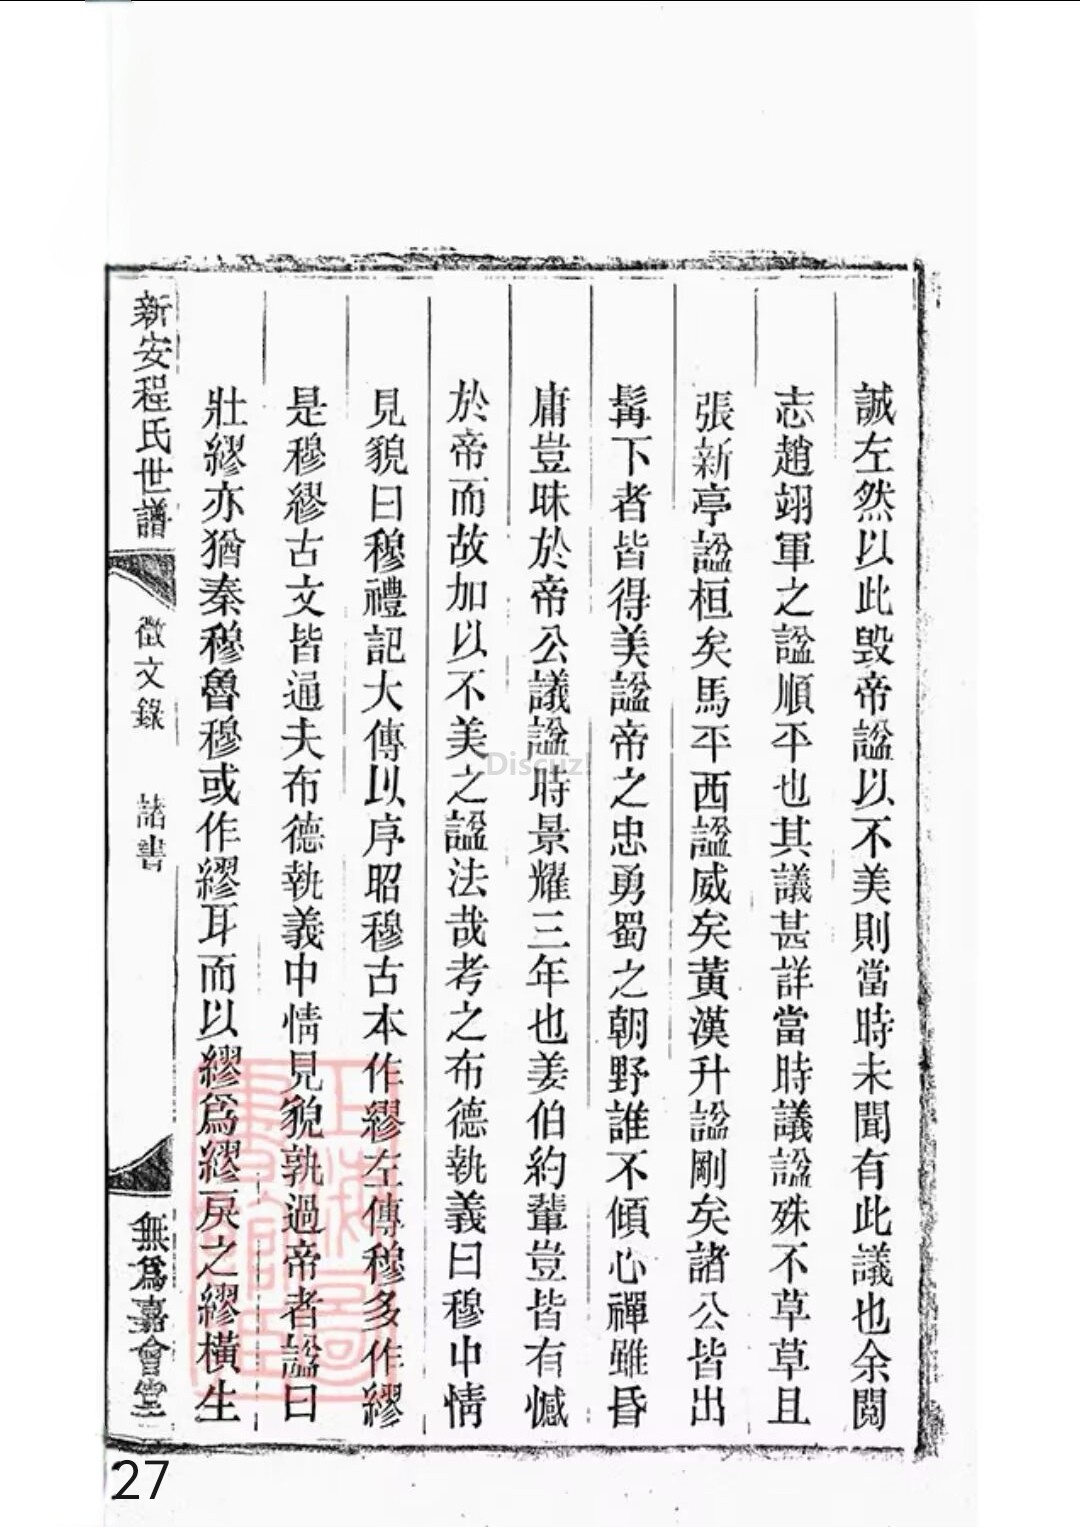 誠左然以此毁帝諡以不美則當時未聞有此議也余閱
志趙翊軍之諡順平也其議甚詳當時議諡殊不草草且
張新亭諡桓矣馬平西諡威矣黃漢升諡剛矣諸公皆出
髯下者皆得美諡帝之忠勇蜀之朝野誰不傾心禪雖昏
庸豈昧於帝公議諡時景耀三年也姜伯約輩豈皆有憾
於帝而故加以不美之諡法哉考之布德執義曰穆中情
見貌曰穆禮記大傳以序昭穆古本作繆左傳穆多作繆
是穆繆古文皆通夫布德執義中情見貌孰過帝者諡曰
壯繆亦猶秦穆魯穆或作繆耳而以繆爲繆戾之繆橫生
新安程氏世譜
徵文錄
諸書
無爲嘉會堂
上海圖書館藏
Discuz!
27